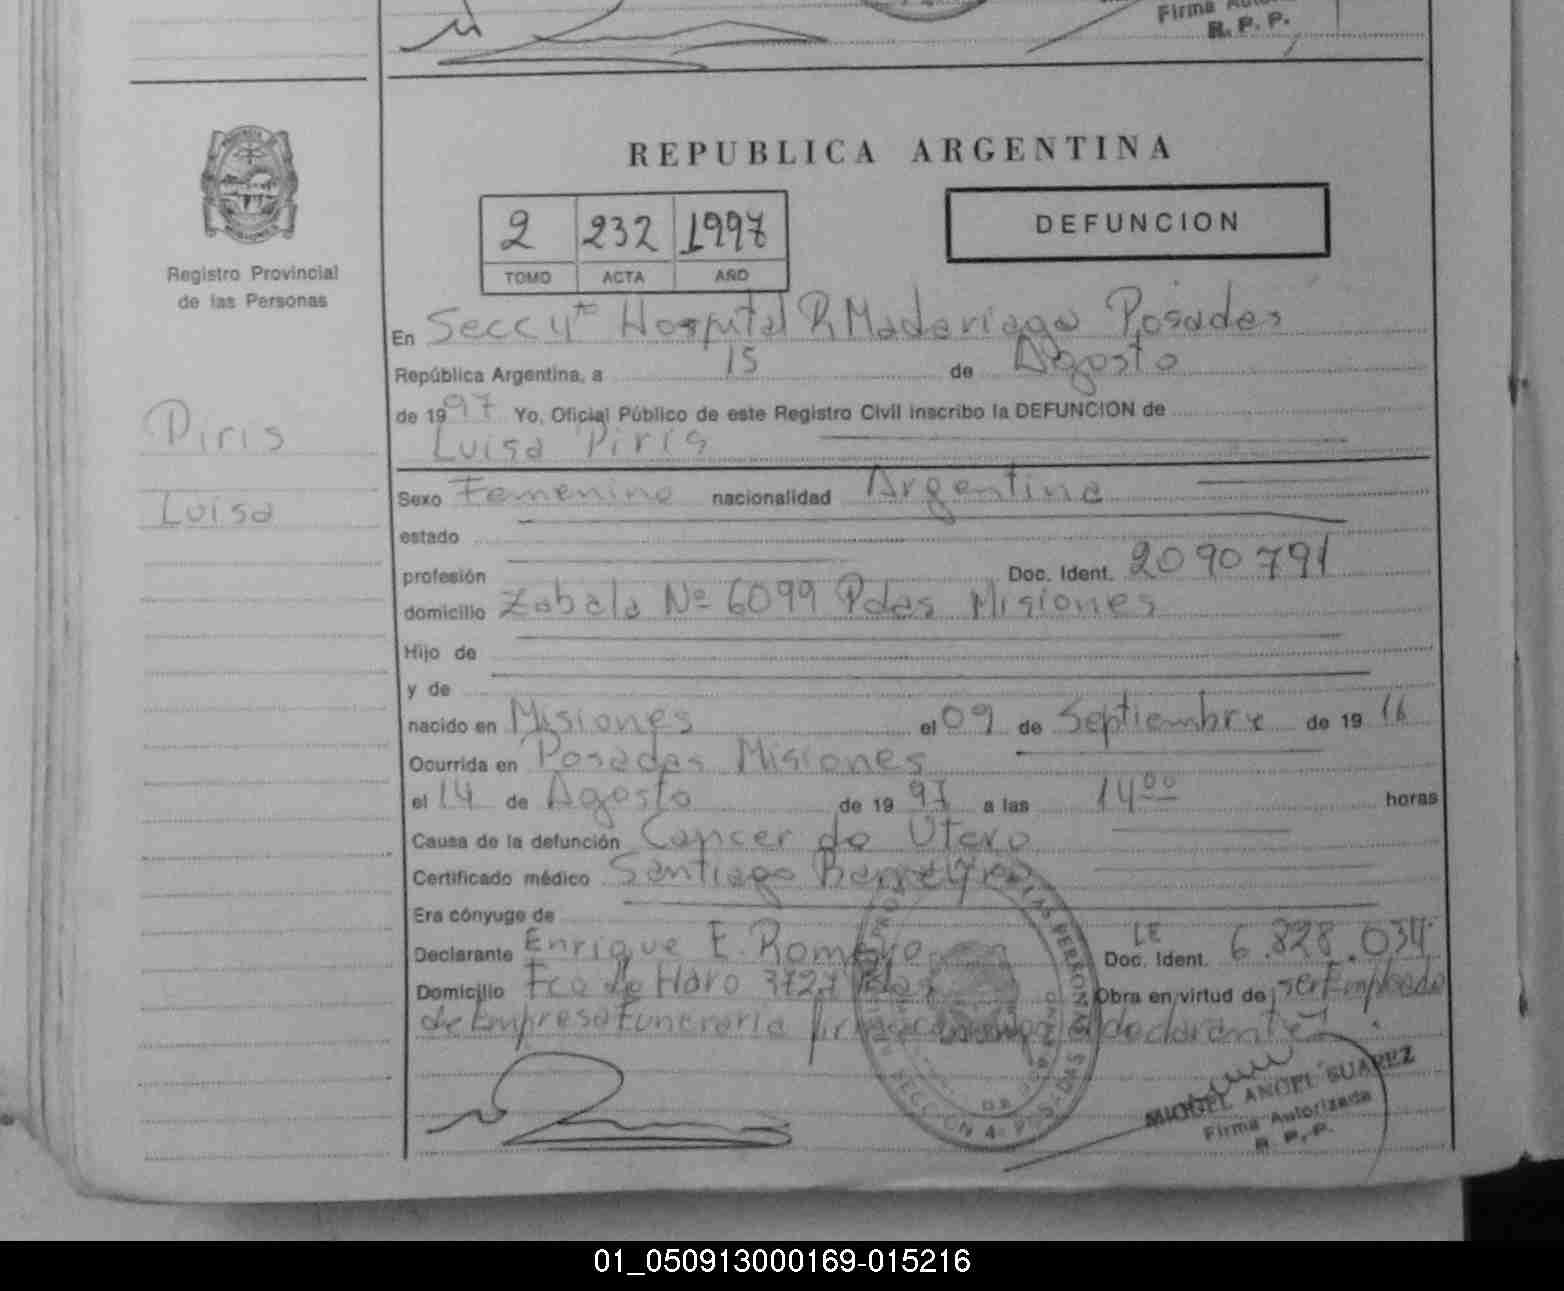 Firma
R. P. P.
REPUBLICA ARGENTINA
2 232 1997
TOMO ACTA AÑO
DEFUNCION
Registro Provincial
de las Personas
En Secc 4ta Hospital R Madariaga Posadas
República Argentina, a 15 de Agosto
de 1997 Yo, Oficial Público de este Registro Civil inscribo la DEFUNCION de
Luisa Piris
Piris
Luisa
Sexo Femenino nacionalidad Argentina
estado
profesión Doc. Ident. 2090791
domicilio Zabala Nº 6099 Pdas Misiones
Hijo de
y de
nacido en Misiones el 09 de Septiembre de 19 16
Ocurrida en Posadas Misiones
el 14 de Agosto de 19 97 a las 14 00 horas
Causa de la defunción Cancer de Utero
Certificado médico Santiago
Era cónyuge de
Declarante Enrique E. Romero Doc. Ident. LE 6.828.034
Domicilio Fco de Haro 3727 Pdas Obra en virtud de ser Empleado
de Empresa Funeraria firma el declarante
SECCION 4a POSADAS
MIGUEL ANGEL SUAREZ
Firma Autorizada
R. P. P.
01_050913000169-015216